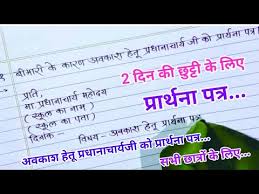 बीमारी के कारण अवकाश हेतू प्रधानाचार्य जी को प्रार्थना पत्र
प्रति,
2 दिन की छुट्टी के लिए
मा प्रधानाचार्य महोदय
(स्कूल का नाम)
प्रार्थना पत्र...
(स्कूल का पता)
दिनांक -
विषय - अवकाश हेतू प्रार्थना पत्र
अवकाश हेतू प्रधानाचार्यजी को प्रार्थना पत्र...
सभी छात्रों के लिए...